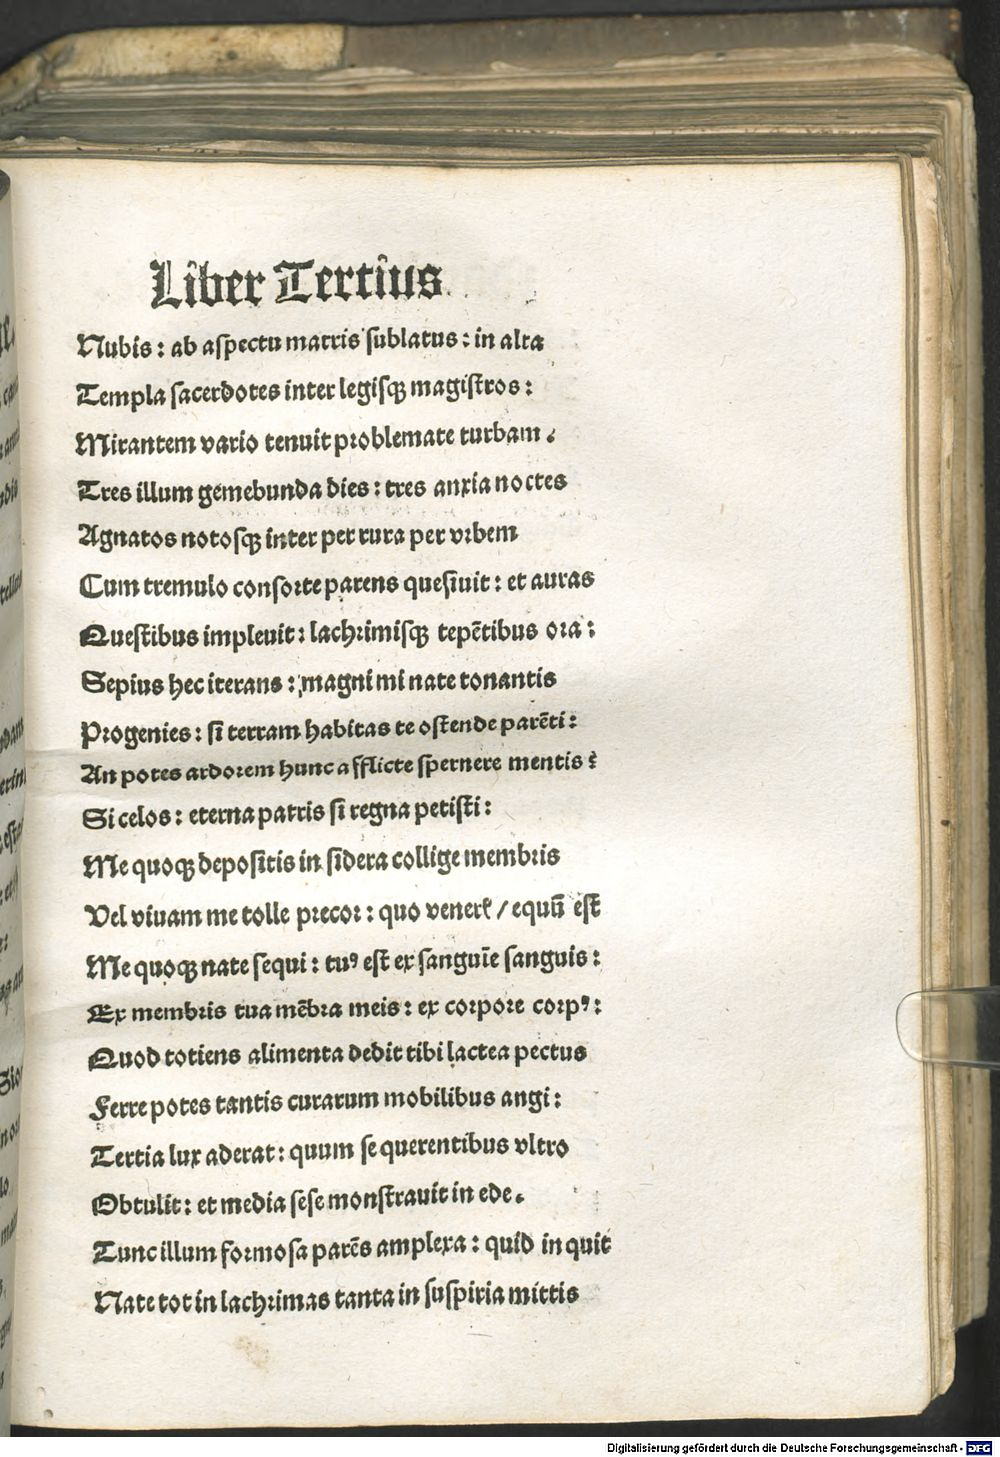 Liber Tertius
Nubis : ab aspectu matris sublatus : in alta
Templa sacerdotes inter legisqꝫ magistros :
Mirantem vario tenuit problemate turbam .
Tres illum gemebunda dies : tres anxia noctes
Agnatos notosqꝫ inter per rura per vrbem
Cum tremulo consorte parens quesiuit : et auras
Questibus impleuit : lachrimisqꝫ tepētibus ora :
Sepius hec iterans : magni mi nate tonantis
Progenies : si terram habitas te ostende parēti :
An potes ardorem hunc afflicte spernere mentis :
Si celos : eterna patris si regna petisti :
Me quoqꝫ depositis in sidera collige membris
Vel viuam me tolle precor : quo / equū est
Me quoqꝫ nate sequi : tuꝰ est ex sanguīe sanguis :
Ex membris tua mēbra meis : ex corpore corpꝰ :
Quod totiens alimenta dedit tibi lactea pectus
Ferre potes tantis curarum mobilibus angi :
Tertia lux aderat : quum se querentibus vltro
Obtulit : et media sese monstrauit in ede .
Tunc illum formosa parēs amplexa : quid inquit
Nate tot in lachrimas tanta in suspiria mittis
Digitalisierung gefördert durch die Deutsche Forschungsgemeinschaft - DFG